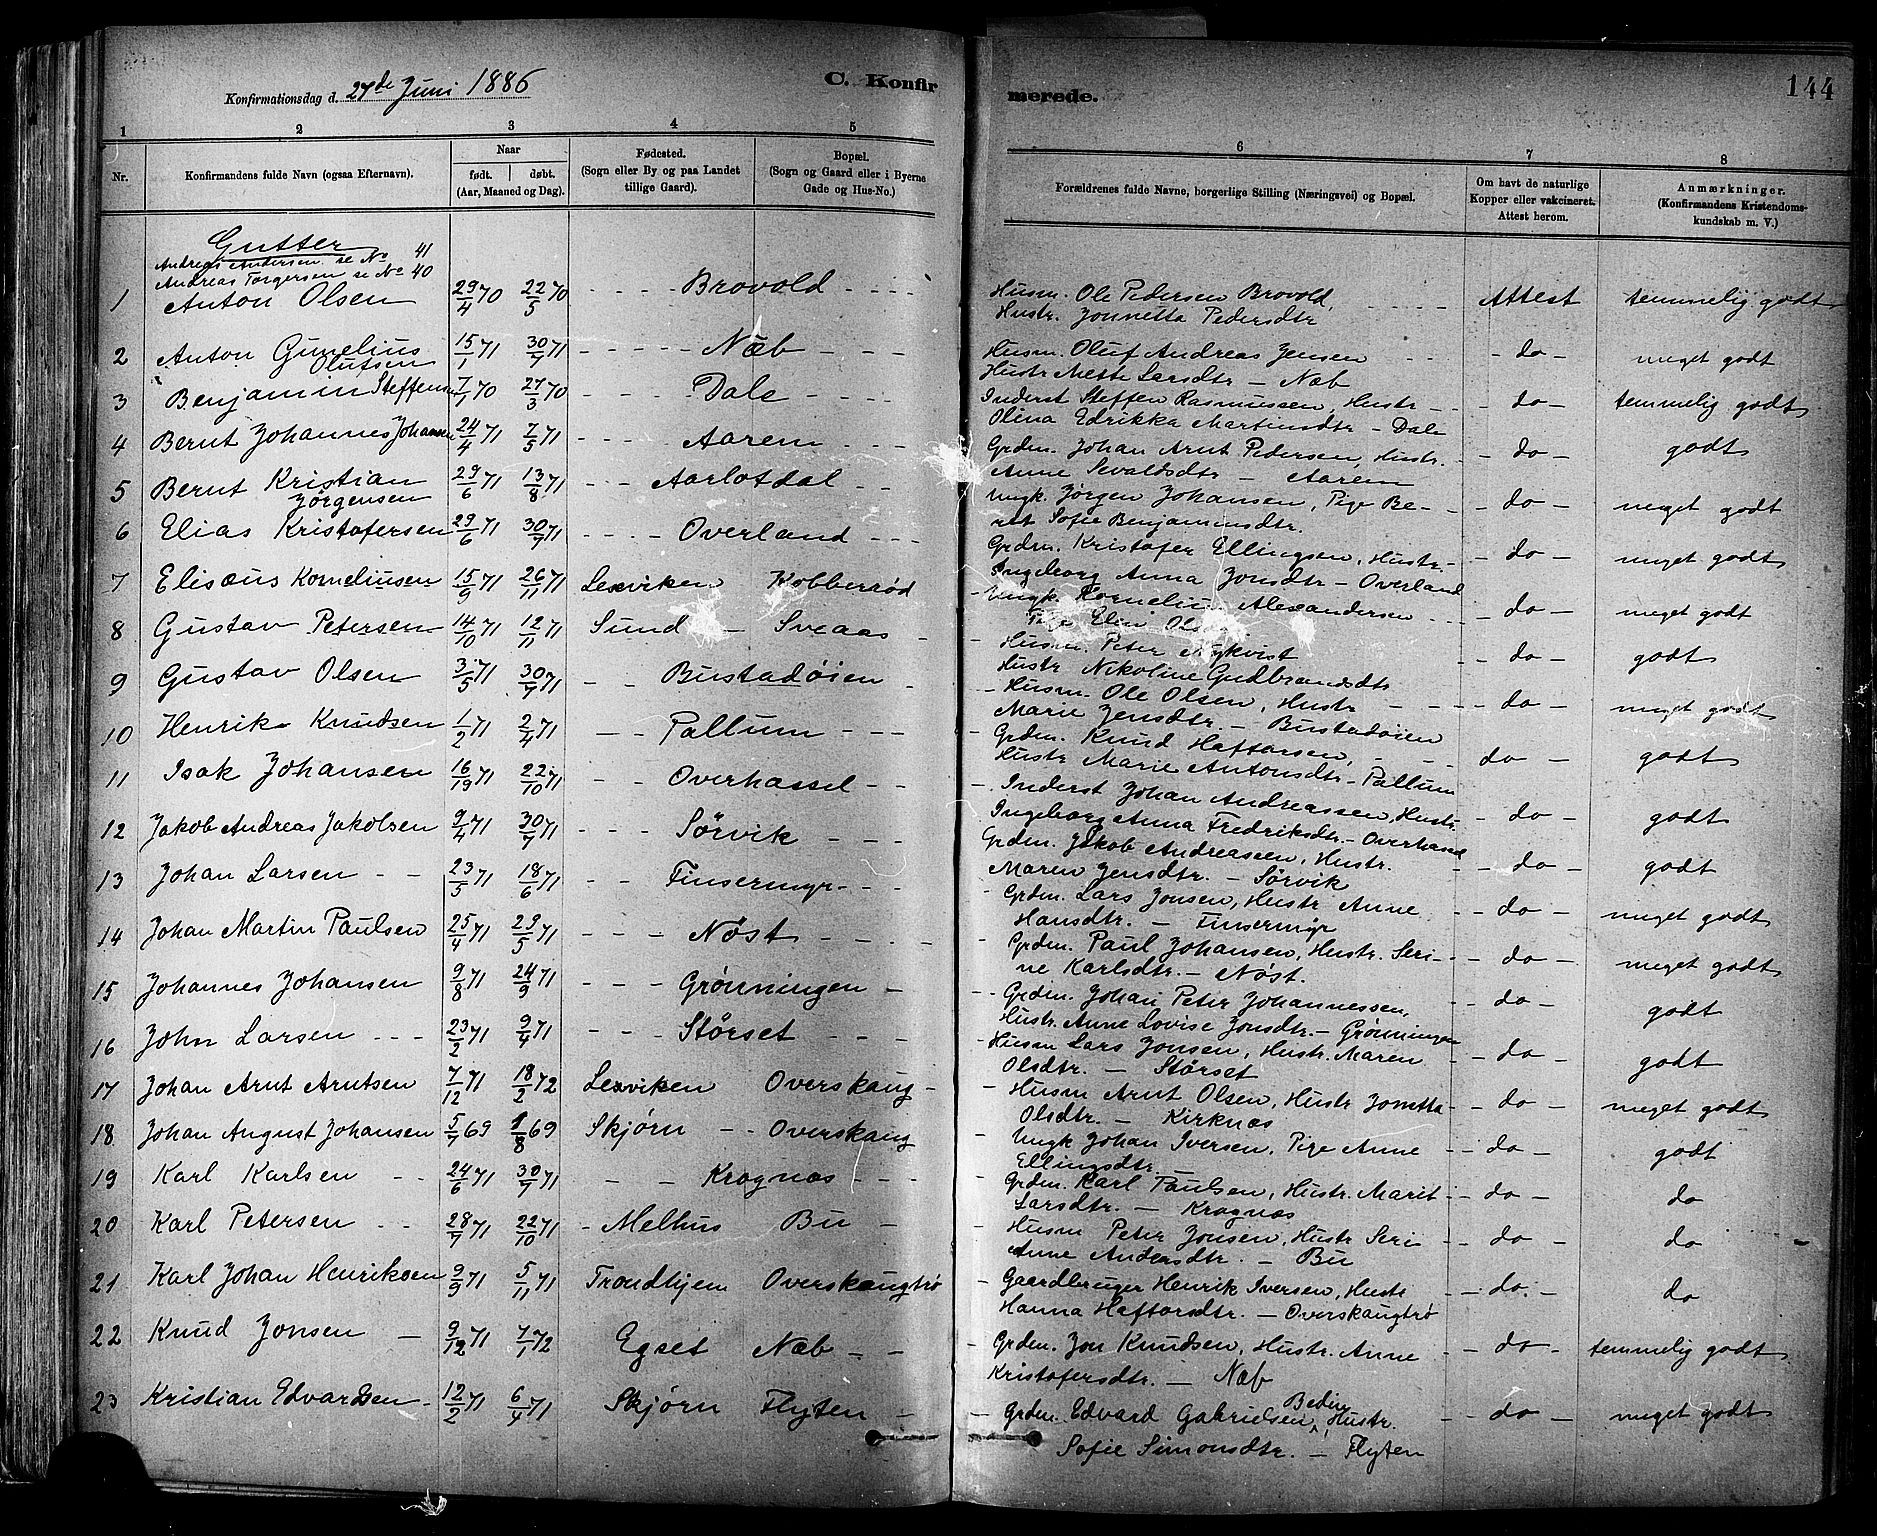 Konfirmationsdag d. 27de Juni 1886
C. Konfir
merede.
144
1 2 3 4 5 6 7 8
Nr.
Konfirmandens fulde Navn (ogsaa Efternavn).
Naar
født. døbt.
(Aar, Maaned og Dag).
Fødested.
(Sogn eller By og paa Landet
tillige Gaard).
Bopæl.
(Sogn og Gaard eller i Byerne
Gade og Hus-No.)
Forældrenes fulde Navne, borgerlige Stilling (Næringsvei) og Bopæl.
Om havt de naturlige
Kopper eller vakcineret.
Attest herom.
Anmærkninger.
(Konfirmandens Kristendoms-
kundskab m. V.)
Gutter
Andreas Andersen se No 41
Andreas Torgersen se No 40
1 Anton Olsen 29/4 70 22/5 70 - - - - Brovold - - - - Husm. Ole Pedersen Brovold, - - - - Attest temmelig godt
Hustr. Jonnetta Pedersdtr
2 Anton Gunelius 15/1 71 30/7 71 - - - - - Næb - - - Husm. Oluf Andreas Jensen - - - - do - meget godt
Olufsen Hustr Mette Larsdtr - Næb
3 Benjamin Steffensen 7/1 70 27/3 70 - - - - Dale - - - - Inderst Steffen Rasmussen, Hustr - - - do - temmelig godt
Olina Edrikka Martinsdtr - Dale
4 Bernt Johannes Johansen 24/4 71 7/5 71 - - - - Aarem - - - Grdm. Johan Arnt Pedersen, Hustr. - - do - godt
Anne Sevaldsdtr - Aarem
5 Bernt Kristian 29/6 71 13/8 71 - - - Aarlotdal - - Ungk. Jørgen Johansen, Pige Be- - - do - meget godt
Jørgensen ret Sofie Benjaminsdtr.
6 Elias Kristofersen 29/6 71 30/7 71 - - - - Overland - - - Grdm. Kristofer Ellingsen, Hustr. - do - meget godt
Ingeborg Anna Jonsdtr - Overland
7 Elisæus Korneliusen 15/9 71 26/11 71 Lexviken Kobberrød - Ungk. Kornelius Alexandersen - - - do - meget godt
Pige Elen
8 Gustav Petersen 14/10 71 12/11 71 Sund - Sveaas - Husm. Peter Nykvist - - do - godt
Hustr Nikoline Gudbrandsdtr
9 Gustav Olsen 3/5 71 30/7 71 - - Bustadøien - - Husm. Ole Olsen, Hustr - - - do - meget godt
Marie Jensdtr. - Bustadøien
10 Henrik Knudsen 1/2 71 2/4 71 - - Pallum - - - - Grdm. Knud Haftorsen, - - - do - godt
Hustr Marie Antonsdtr - Pallum
11 Isak Johansen 16/19 71 22/10 71 - - Overhassel - - - Inderst Johan Andreassen, Hustr. - do - godt
Ingeborg Anna Fredriksdtr. - Overhassel
12 Jakob Andreas Jakobsen 9/4 71 30/7 71 - - - Sørvik - - - Grdm. Jakob Andreassen, Hustr. - - do - godt
Maren Jensdtr. - Sørvik
13 Johan Larsen - - 23/5 71 18/6 71 - - Finsermyr - - - - Grdm. Lars Jonsen, Hustr Anne - - do - meget godt
Hansdtr. - Finsermyr
14 Johan Martin Paulsen 25/4 71 29/5 71 - - - Nøst - - - - Grdm. Paul Johansen, Hustr. Seri- - - do - meget godt
ne Karlsdtr. - Nøst.
15 Johannes Johansen 9/8 71 24/9 71 - - - Grønningen - - - Grdm. Johan Peter Johannessen, - do - godt
Hustr. Anne Lovise Jonsdtr. - Grønningen
16 John Larsen - - - 23/2 71 9/4 71 - - Størset - - - - Husm Lars Jonsen, Hustr. Maren - - do - godt
Olsdtr. - Størset
17 Johan Arnt Arntsen 7/12 71 18/2 72 Lexviken Overskaug - - Husm Arnt Olsen, Hustr Jonetta - do - meget godt
Olsdtr. - Kirknæs
18 Johan August Johansen 5/7 69 1/8 69 Skjørn - - Overskaug - Ungk Johan Iversen, Pige Anne - - do - godt
Ellingsdtr. -
19 Karl Karlsen - - 24/6 71 30/7 71 - - Kragnæs - - - Grdm. Karl Paulsen, Hustr. Marit - do - do
Larsdtr. - Kragnæs
20 Karl Petersen - - 28/7 71 22/10 71 - Melhus Bu - - Husm Peter Jonsen, Hustr Seri - - do - do -
Anne Andersdtr. - Bu
21 Karl Johan Henriksen 9/9 71 5/11 71 Trondhjem Overskaugtrø - Gaardbruger Henrik Iversen, Hustr - - do. - do
Hanna Haftorsdtr. - Overskaugtrø
22 Knud Jonsen - 9/12 71 7/1 72 Egset Næb - - - Grdm. Jon Knudsen, Hustr. Anne - - do - temmelig godt
Kristofersdtr. - Næb
23 Kristian Edvardsen - 12/2 71 6/4 71 Skjørn Flyten - - Grdm. Edvard Gabrielsen, Hustr. - do - meget godt
Sofie Simonsdtr. - Flyten